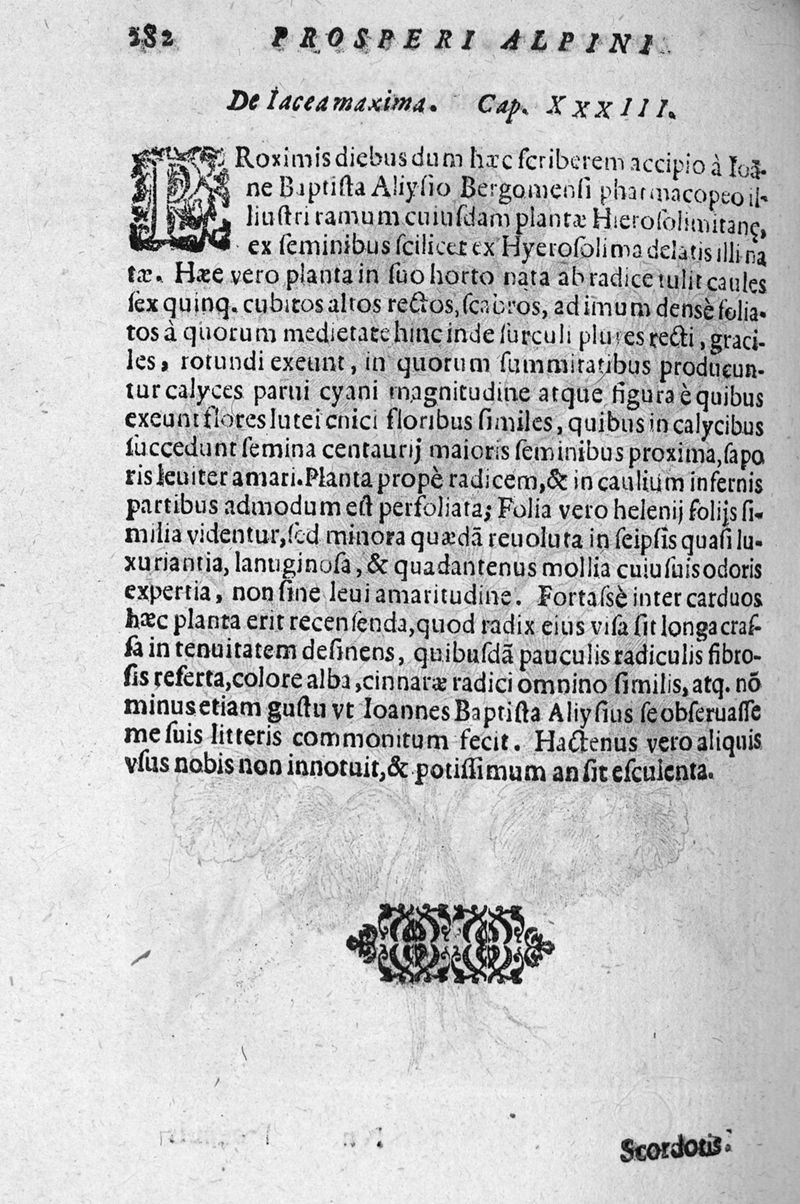 282 PROSPERI ALPINI.
De Iacea maxima. Cap. XXXIII.
PRoximis diebus dum hæc scriberem accipio à Ioã-
ne Baptista Aliysio Bergomensi pharmacopeo il-
liustri ramum cuiusdam plantæ Hierosolimitanę,
ex seminibus scilicet ex Hyerosolima delatis illi na
tæ. Hæe vero planta in suo horto nata ab radice tulit caules
sex quinq. cubitos altos rectos, scabros, ad imum densè folia-
tos à quorum medietate hinc inde surculi plures recti, graci-
les, rotundi exeunt, in quorum summitatibus producun-
tur calyces parui cyani magnitudine atque figura è quibus
exeunt flores lutei cnici floribus similes, quibus in calycibus
succedunt semina centaurij maioris seminibus proxima, sapo
ris leuiter amari. Planta propè radicem, & in caulium infernis
partibus admodum est perfoliata; Folia vero helenij folijs si-
milia videntur, sed minora quædã reuoluta in seipsis quasi lu-
xuriantia, lanuginosa, & quadantenus mollia cuiusuis odoris
expertia, non sine leui amaritudine. Fortassè inter carduos
hæc planta erit recensenda, quod radix eius visa sit longa cras-
sa in tenuitatem desinens, quibusdã pauculis radiculis fibro-
sis referta, colore alba, cinnaræ radici omnino similis, atq. nõ
minus etiam gustu vt Ioannes Baptista Aliysius se obseruasse
me suis litteris commonitum fecit. Hactenus vero aliquis
vsus nobis non innotuit, & potissimum an sit esculenta.
Scordotis.